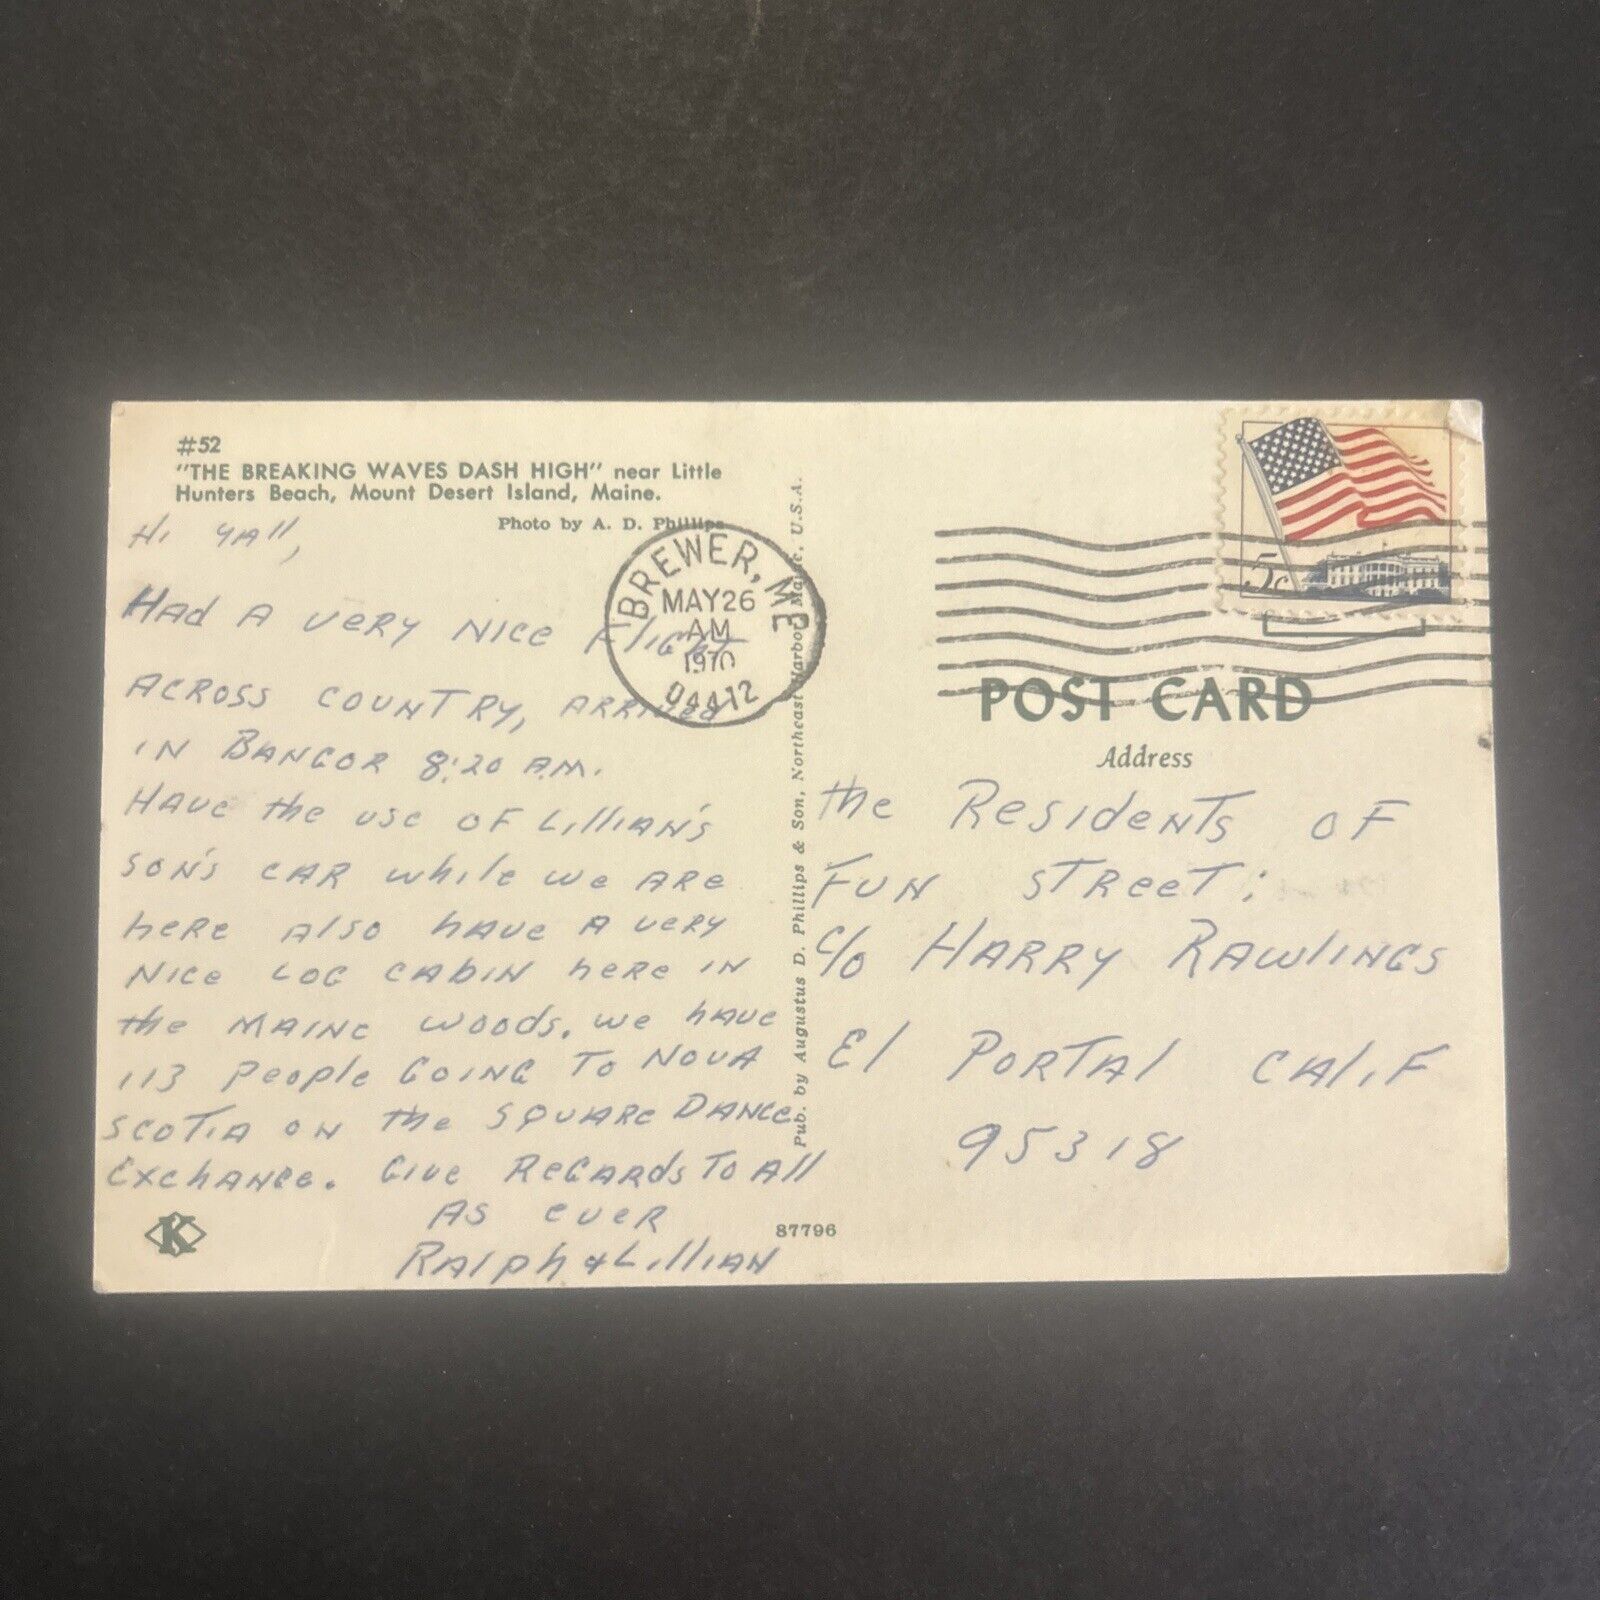 #52
"THE BREAKING WAVES DASH HIGH" near Little
Hunters Beach, Mount Desert Island, Maine.
Photo by A. D. Phillips
Hi yAll,
HAd A VERY NICE FLIGHT
ACROSS COUNTRY, ARRIVED
IN BANGOR 8:20 A.M.
HAVE the USE OF LilliAN's
SON'S CAR while we ARE
heRe Also hAVE A VERY
NICE LOG CABIN heRe IN
the MAINE WOODS. We hAVE
113 People GOING TO NOVA
SCOTIA ON the SQUARE DANCE
EXChANGE. GIVE ReGARds To All
AS EVER
RAlph & LilliAN
BREWER, ME
MAY 26
AM
1970
04412
Pub. by Augustus D. Phillips & Son, Northeast Harbor, Maine, U.S.A.
5c
POST CARD
Address
the ResideNTs OF
FUN STReeT:
c/o HARRY RAWLINGS
El PORTAl CAliF
95318
K
87796